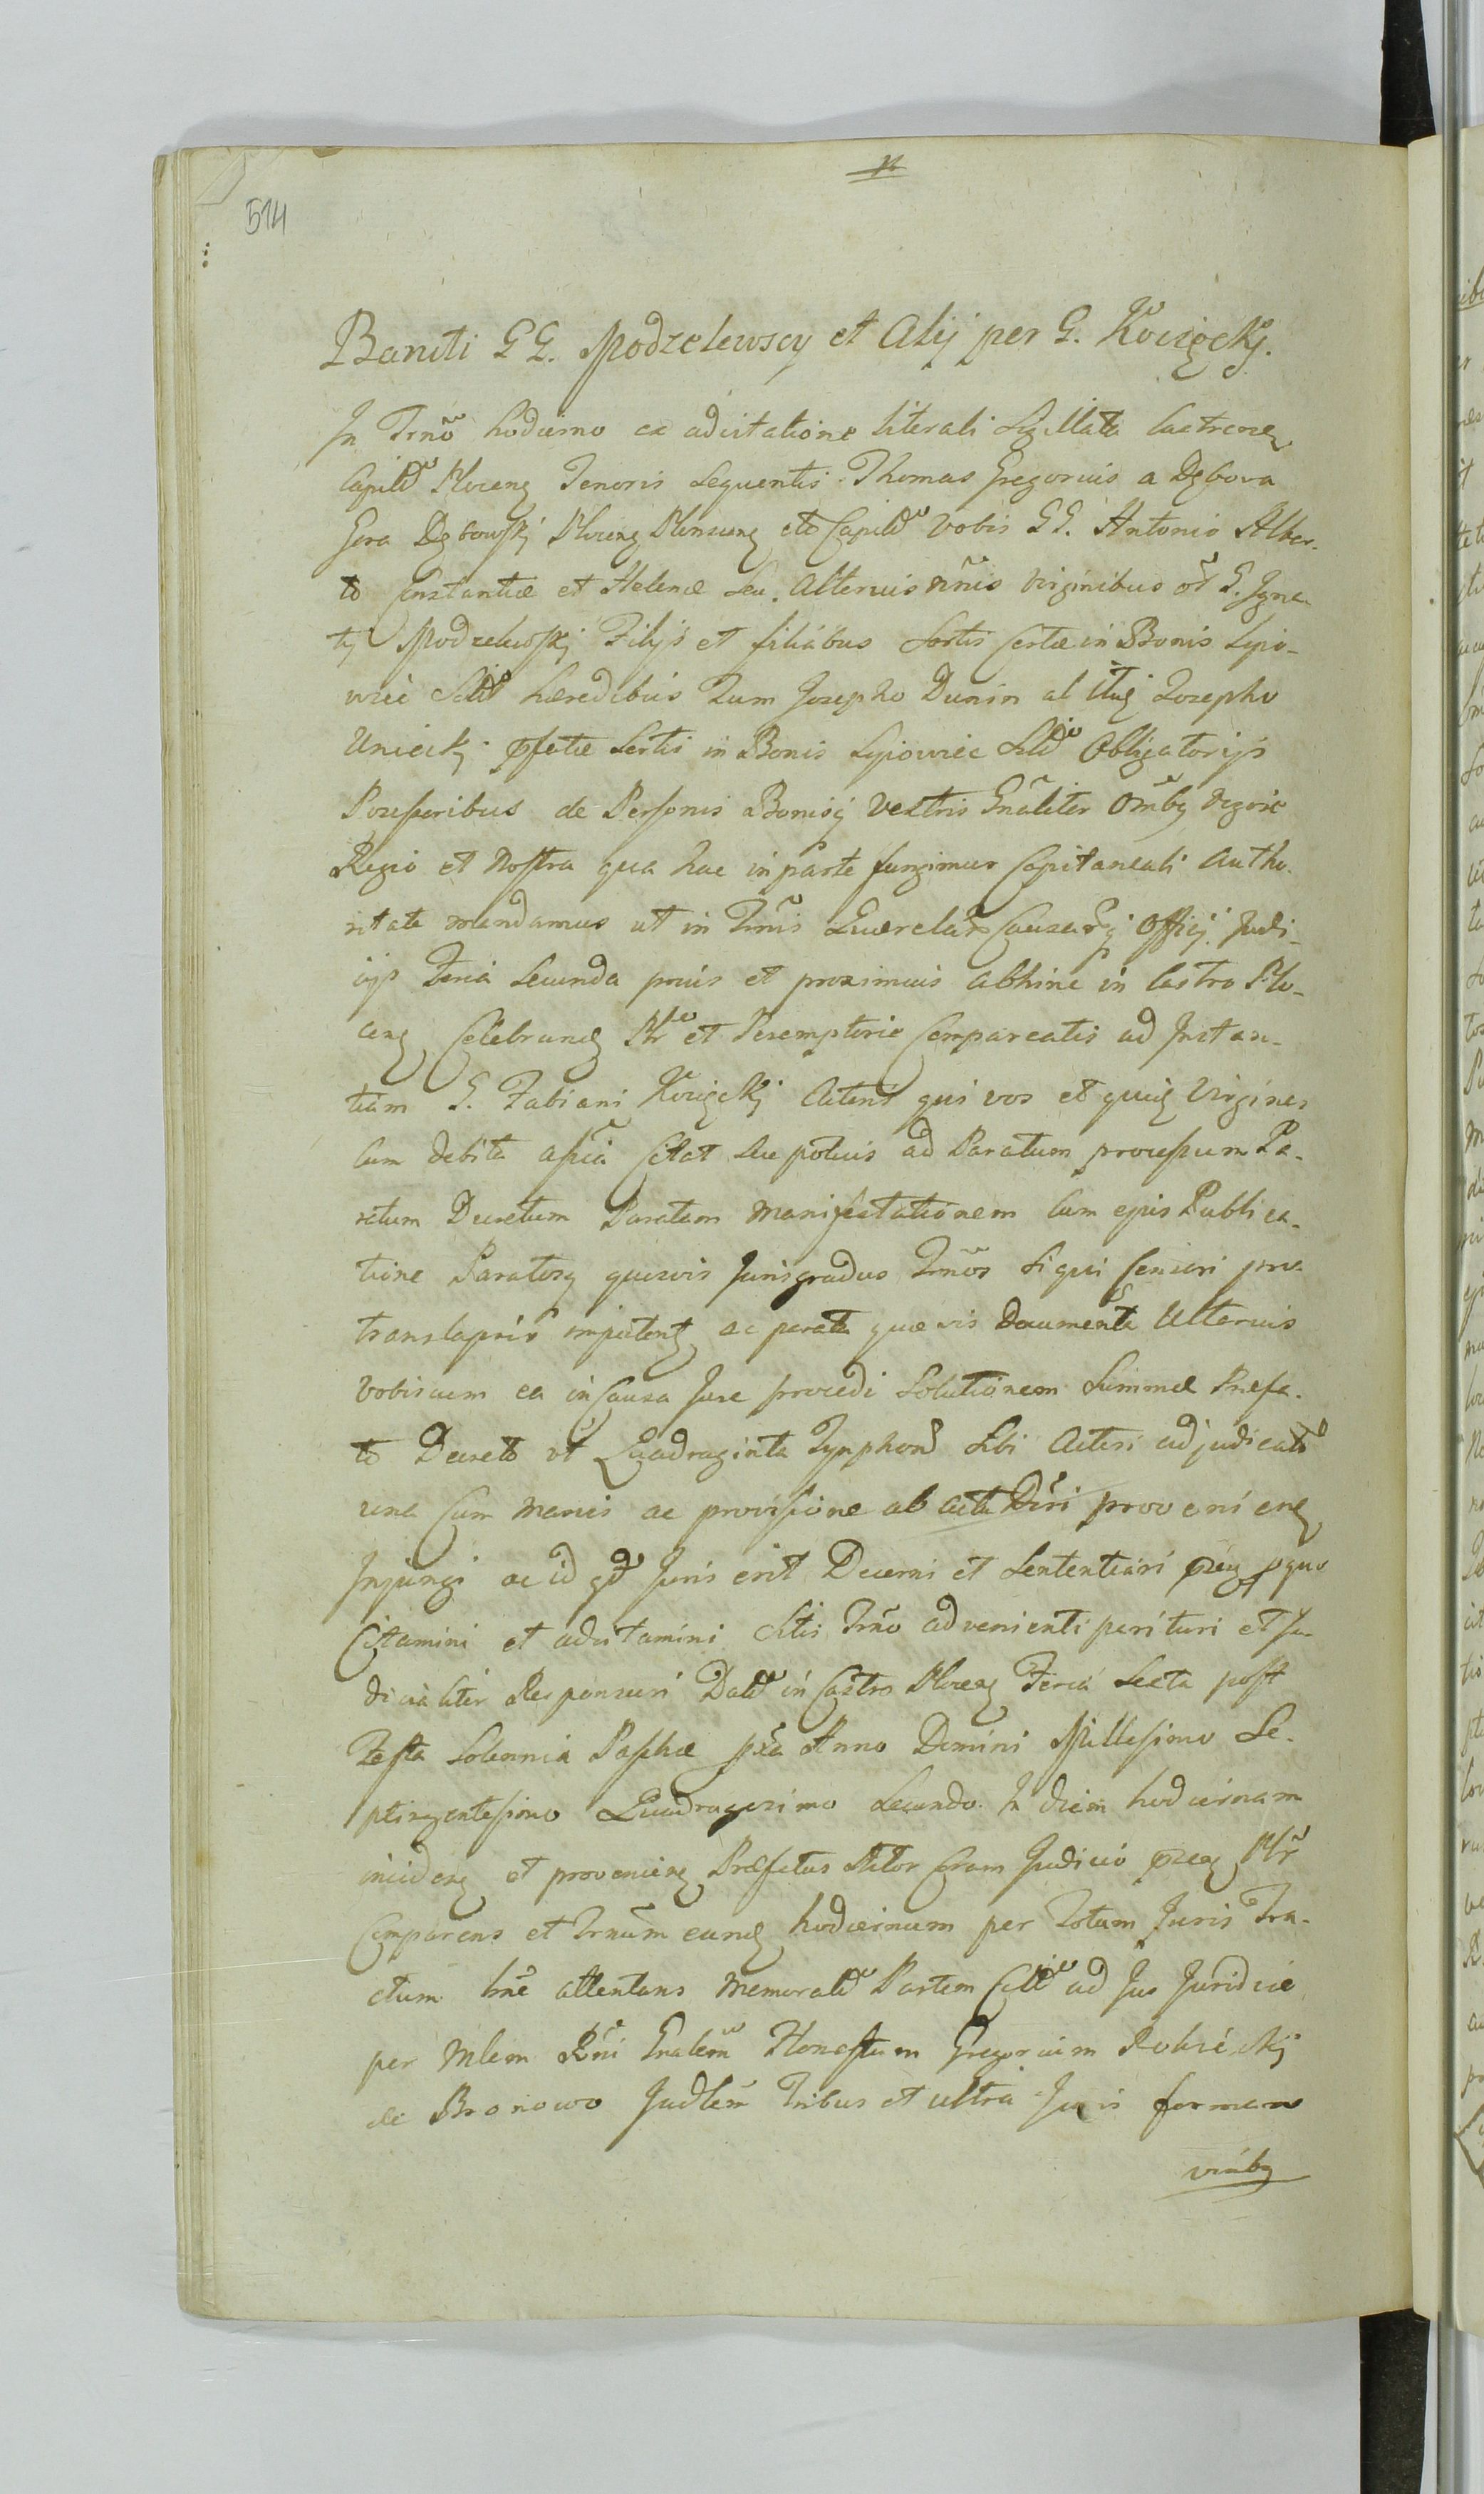 514
Baniti GG. Modzelewscy et Alij per G. Kocięcki.
In Trno hodierno ex adcitatione literali Sigillata Castrensi
Capitli Plocen Tenoris Sequentis Thomas Gregorius a Dębova
Gora Dębowskj Plocen Plonscen etc Capitls Vobis GG. Antonio Alber-
to Constantiæ et Helenæ Seu Alterius nñis Virginibus oł G. Igna-
tij Modzelewskj Filijs et filiabus Sortis Certæ in Bonis Lipo-
wiec hæredibus Tum Josepho Dunin al Josepho
Unieckj pfatæ Sortis in Bonis Lipowiec Obligatorijs
Possessoribus de Personis Bonisq Vestris Gnaliter Omnibq Vigore
Regio et Nostra qua hac in parte fungimur Capitaneali Autho-
ritate mandamus ut in Trnis Querelar Causarq Officj Judi-
cijs Feria Secunda prius et proximius abhinc in Castro Plo-
cen Celebrand Plr et Peremptorie Compareatis ad Instan-
tiam G. Fabiani Kocięckj Actoris qui vos et quidem Virgines
Cum debita assña Citat Seu potius ad Paratum processum Pa-
ratum Decretum Paratam Manifestationem Cum ejus Publica-
tione Paratosq quosvis Jurisgradus Trnos Siqui Censeri pro
translapsis ac parata quævis Documenta Ulterius
Vobiscum ea in Causa Jure procedi Solutionem Summæ Præfa-
to Decreto ut Quadraginta Tynphon Sibi Actori adjudicat
una Cum provisione ab acta provenien
Injungi ac id qd Juris erit Decerni et Sententiari pñq pquo
Citamini et adcitamini Sitis Trno advenienti parituri et Ju-
dicialiter Responsuri Dat in Castro Plocen Feria Sexta post
Festa Solennia Paschæ pxa Anno Domini Millesimo Se-
ptingentesimo Quadragesimo Secundo. In diem hodiernam
inciden et provenien Præfatus Actor Coram Judicio pñq Plr
Comparens et Trnum eund hodiernum per Totum Juris Tra-
ctum bne attentans Memorat Partem Citt ad Jus Juridice
per Mlem Rni Gnalem Honestum Gregorium
de Bronowo Judlem Tribus et ultra Juris formam
vicibq